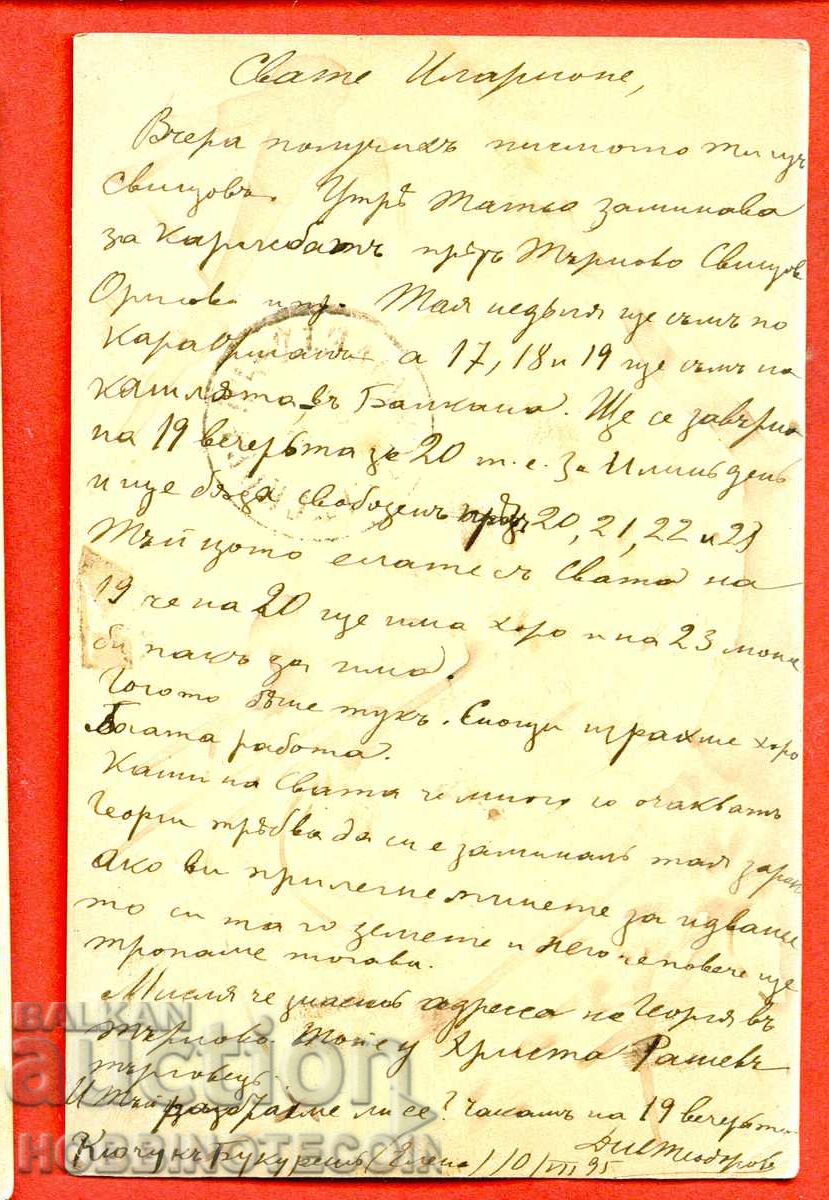 Свате Иларионе,
Вчера получихъ писмото ти изъ
Свищовъ. Утрѣ Татьо заминава
за Карлсбатъ прѣзъ Търново Свищовъ
Орсова и пр. Тая недѣля ще съмъ по
а 17, 18 и 19 ще съмъ на
въ Балкана. Ще се завърна
на 19 вечерьта за 20 т. е. За Илинъ день
и ще бѫда свободенъ прѣзъ 20, 21, 22 и 23
Тъй щото елате съ Свата на
19 че на 20 ще има хоро и на 23 може
би пакъ да има.
Гогото бѣше тукъ. Снощи играхме хоро
работа.
Кажи на Свата че много го очакватъ
Георги трѣбва да си е заминалъ тая зарань
Ако ви прилегне пишете за идвание
то си та го земете и него че повече ще
тропаме тогава.
Мисля че знаешъ адресса на Георгя въ
Търново. Той е у Христа Рашевъ
търговецъ.
И тъй разбрахме ли се? Чакамъ на 19 вечерьта
Кючукъ Букурещъ (Елена) 10/VII 95
Теодоровъ
BALKAN
auction
HOBBINOTECOIN